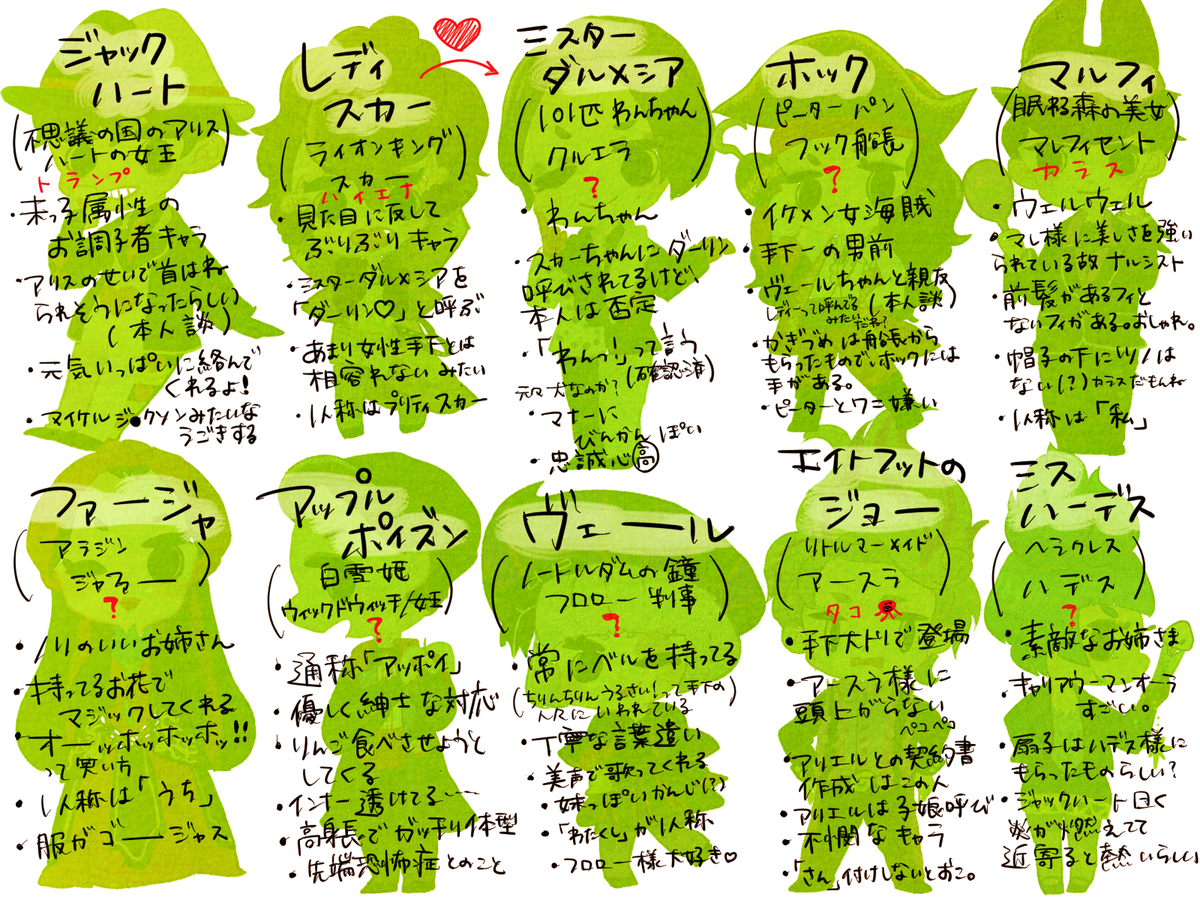 ジャック
ハート
(不思議の国のアリス
ハートの女王)
トランプ
・末っ子属性の
お調子者キャラ
・アリスのせいで首はね
られそうになったらしい
(本人談)
・元気いっぱいに絡んで
くれるよ!
・マイケルジ●クソンみたいな
うごきする
レディ
スカー
(ライオンキング
スカー)
ハイエナ
・見た目に反して
ぶりぶりキャラ
・ミスターダルメシアを
「ダーリン♡」と呼ぶ
・あまり女性手下とは
相容れないみたい
・1人称はプリティスカー
ミスター
ダルメシア
(101匹わんちゃん
クルエラ)
?
・わんちゃん
・スカーちゃんにダーリン
呼びされてるけど、
本人は否定
・「わんっ!」って言う
(確認済)
元々犬なのか?
・マナーに
びんかんぽい
・忠誠心高
ホック
(ピーターパン
フック船長)
?
・イケメン女海賊
・手下一の男前
・ヴェールちゃんと親友
(本人談)
レディーって呼んでる
みたいだね?
・かぎづめは船長から
もらったもので、ホックには
手がある。
・ピーターとワニ嫌い
マルフィ
(眠れる森の美女
マレフィセント)
カラス
・ウェルウェル
・マレ様に美しさを強い
られている故ナルシスト
・前髪があるフィと
ないフィがある。おしゃれ。
・帽子の下にツノは
ない(?)カラスだもんね
・1人称は「私」
ファージャ
(アラジン
ジャファー)
?
・ノリのいいお姉さん
・持ってるお花で
マジックしてくれる
・オーッホッホッホッ!!
って笑い方
・1人称は「うち」
・服がゴージャス
アップル
ポイズン
(白雪姫
ウィックドウィッチ/女王)
?
・通称「アッポイ」
・優しく紳士な対応
・りんご食べさせようと
してくる
・インナー透けてる……
・高身長でガッチリ体型
・先端恐怖症とのこと
ヴェール
(ノートルダムの鐘
フロロー判事)
?
・常にベルを持ってる
(ちりんちりんうるさい!って手下の
人にいわれている)
・丁寧な言葉遣い
・美声で歌ってくれる
・妹っぽいかんじ(?)
・「わたくし」が1人称
・フロロー様大好き♡
エイトフットの
ジョー
(リトルマーメイド
アースラ)
タコ
・手下大トリで登場
・アースラ様に
頭上がらない
ペコペコ
・アリエルとの契約書
作成はこの人
・アリエルは子娘呼び
・不憫なキャラ
・「さん」付けしないとおこ。
ミス
ハーデス
(ヘラクレス
ハデス)
?
・素敵なお姉さま
・キャリアウーマンオーラ
すごい。
・扇子はハデス様に
もらったものらしい?
・ジャックハート曰く
炎が燃えてて
近寄ると熱いらしい